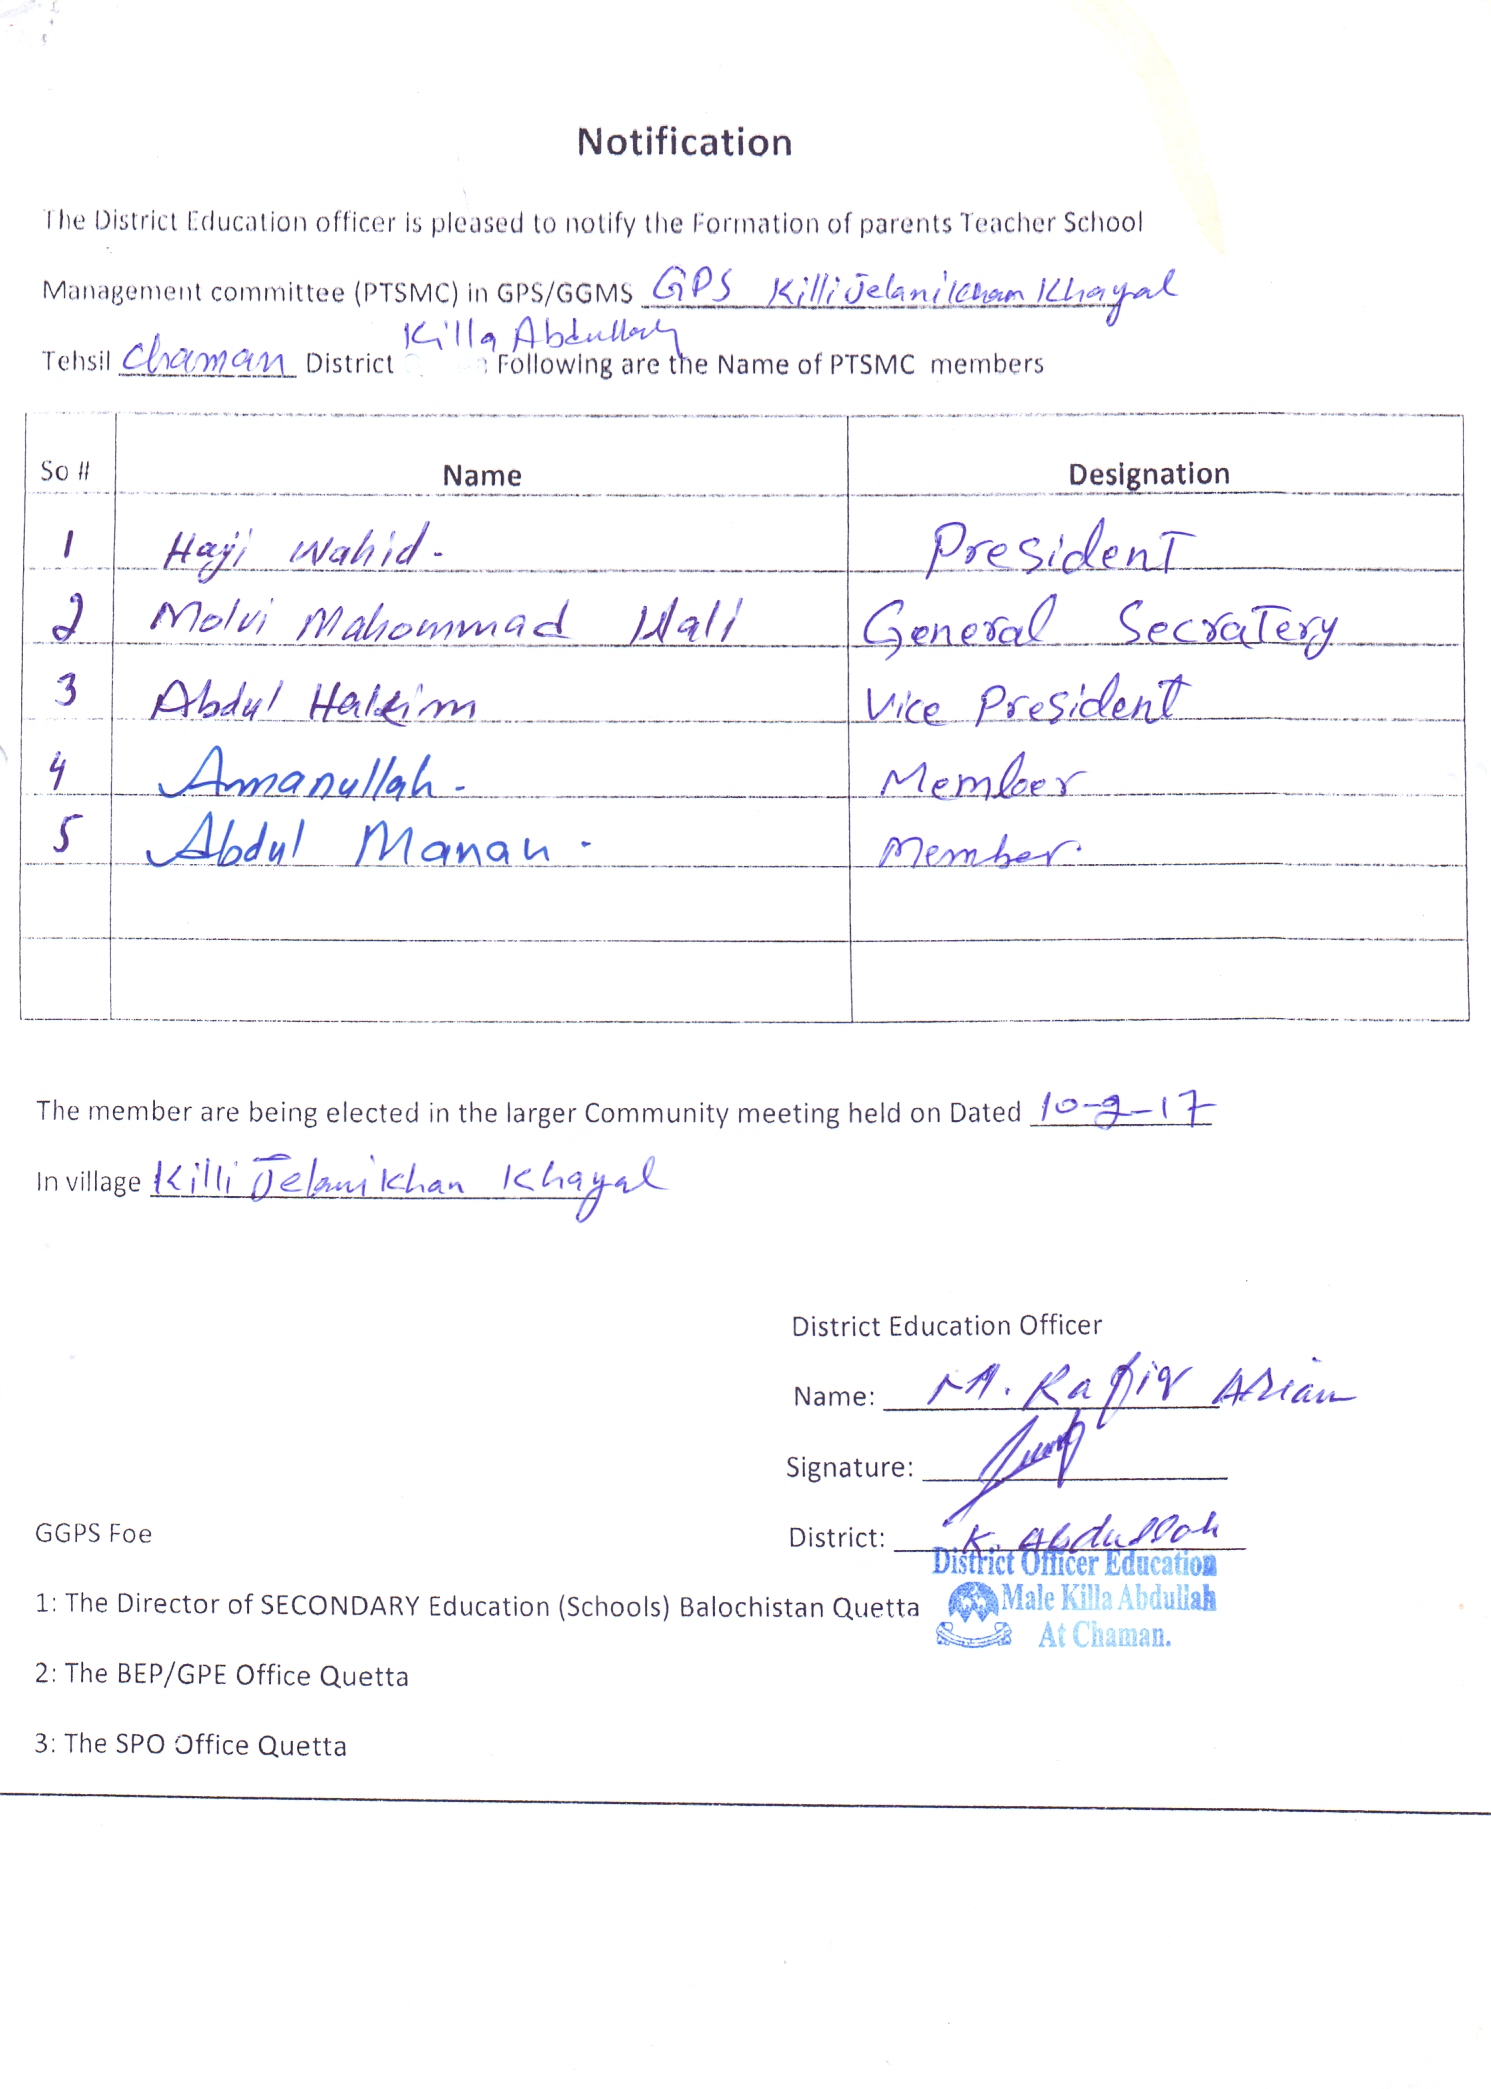 Notification
The District Education officer is pleased to notify the Formation of parents Teacher School
Management committee (PTSMC) in GPS/GGMS GPS Killi Jelani Khan Khayal
Killa Abdullah
Tehsil Chaman District : Following are the Name of PTSMC members
So # Name Designation
1 Haji Wahid - President
2 Molvi Mahommad Wali General Secratery
3 Abdul Hakim Vice President
4 Amanullah - Member
5 Abdul Manan - Member.
The member are being elected in the larger Community meeting held on Dated 10-2-17
In village Killi Jelani Khan Khayal
District Education Officer
Name: M. Rafiq
Signature:
GGPS Foe District: K. Abdullah
District Officer Education
1: The Director of SECONDARY Education (Schools) Balochistan Quetta Male Killa Abdullah
At Chaman.
2: The BEP/GPE Office Quetta
3: The SPO Office Quetta